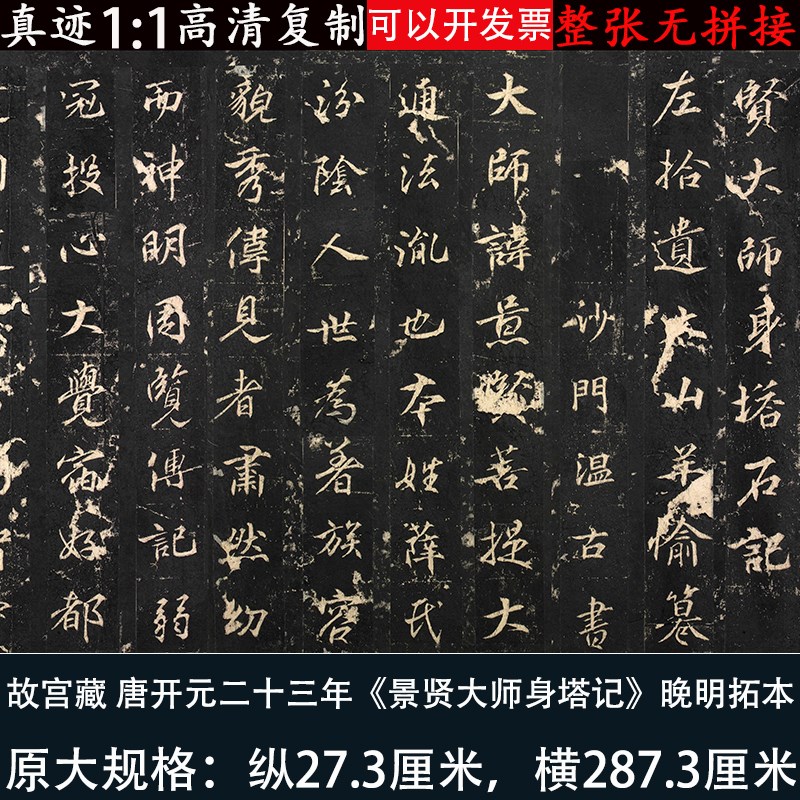 真迹1:1高清复制 可以开发票 整张无拼接
賢大師身塔石記
左拾遺太山羊愉纂
沙門温古書
大師諱景賢菩提大
通法胤也本姓薛氏
汾陰人世為著族容
貌秀偉見者肅然幼
而神明周覽傳記弱
冠投心大覺宿好都
故宫藏 唐开元二十三年《景贤大师身塔记》晚明拓本
原大规格：纵27.3厘米，横287.3厘米